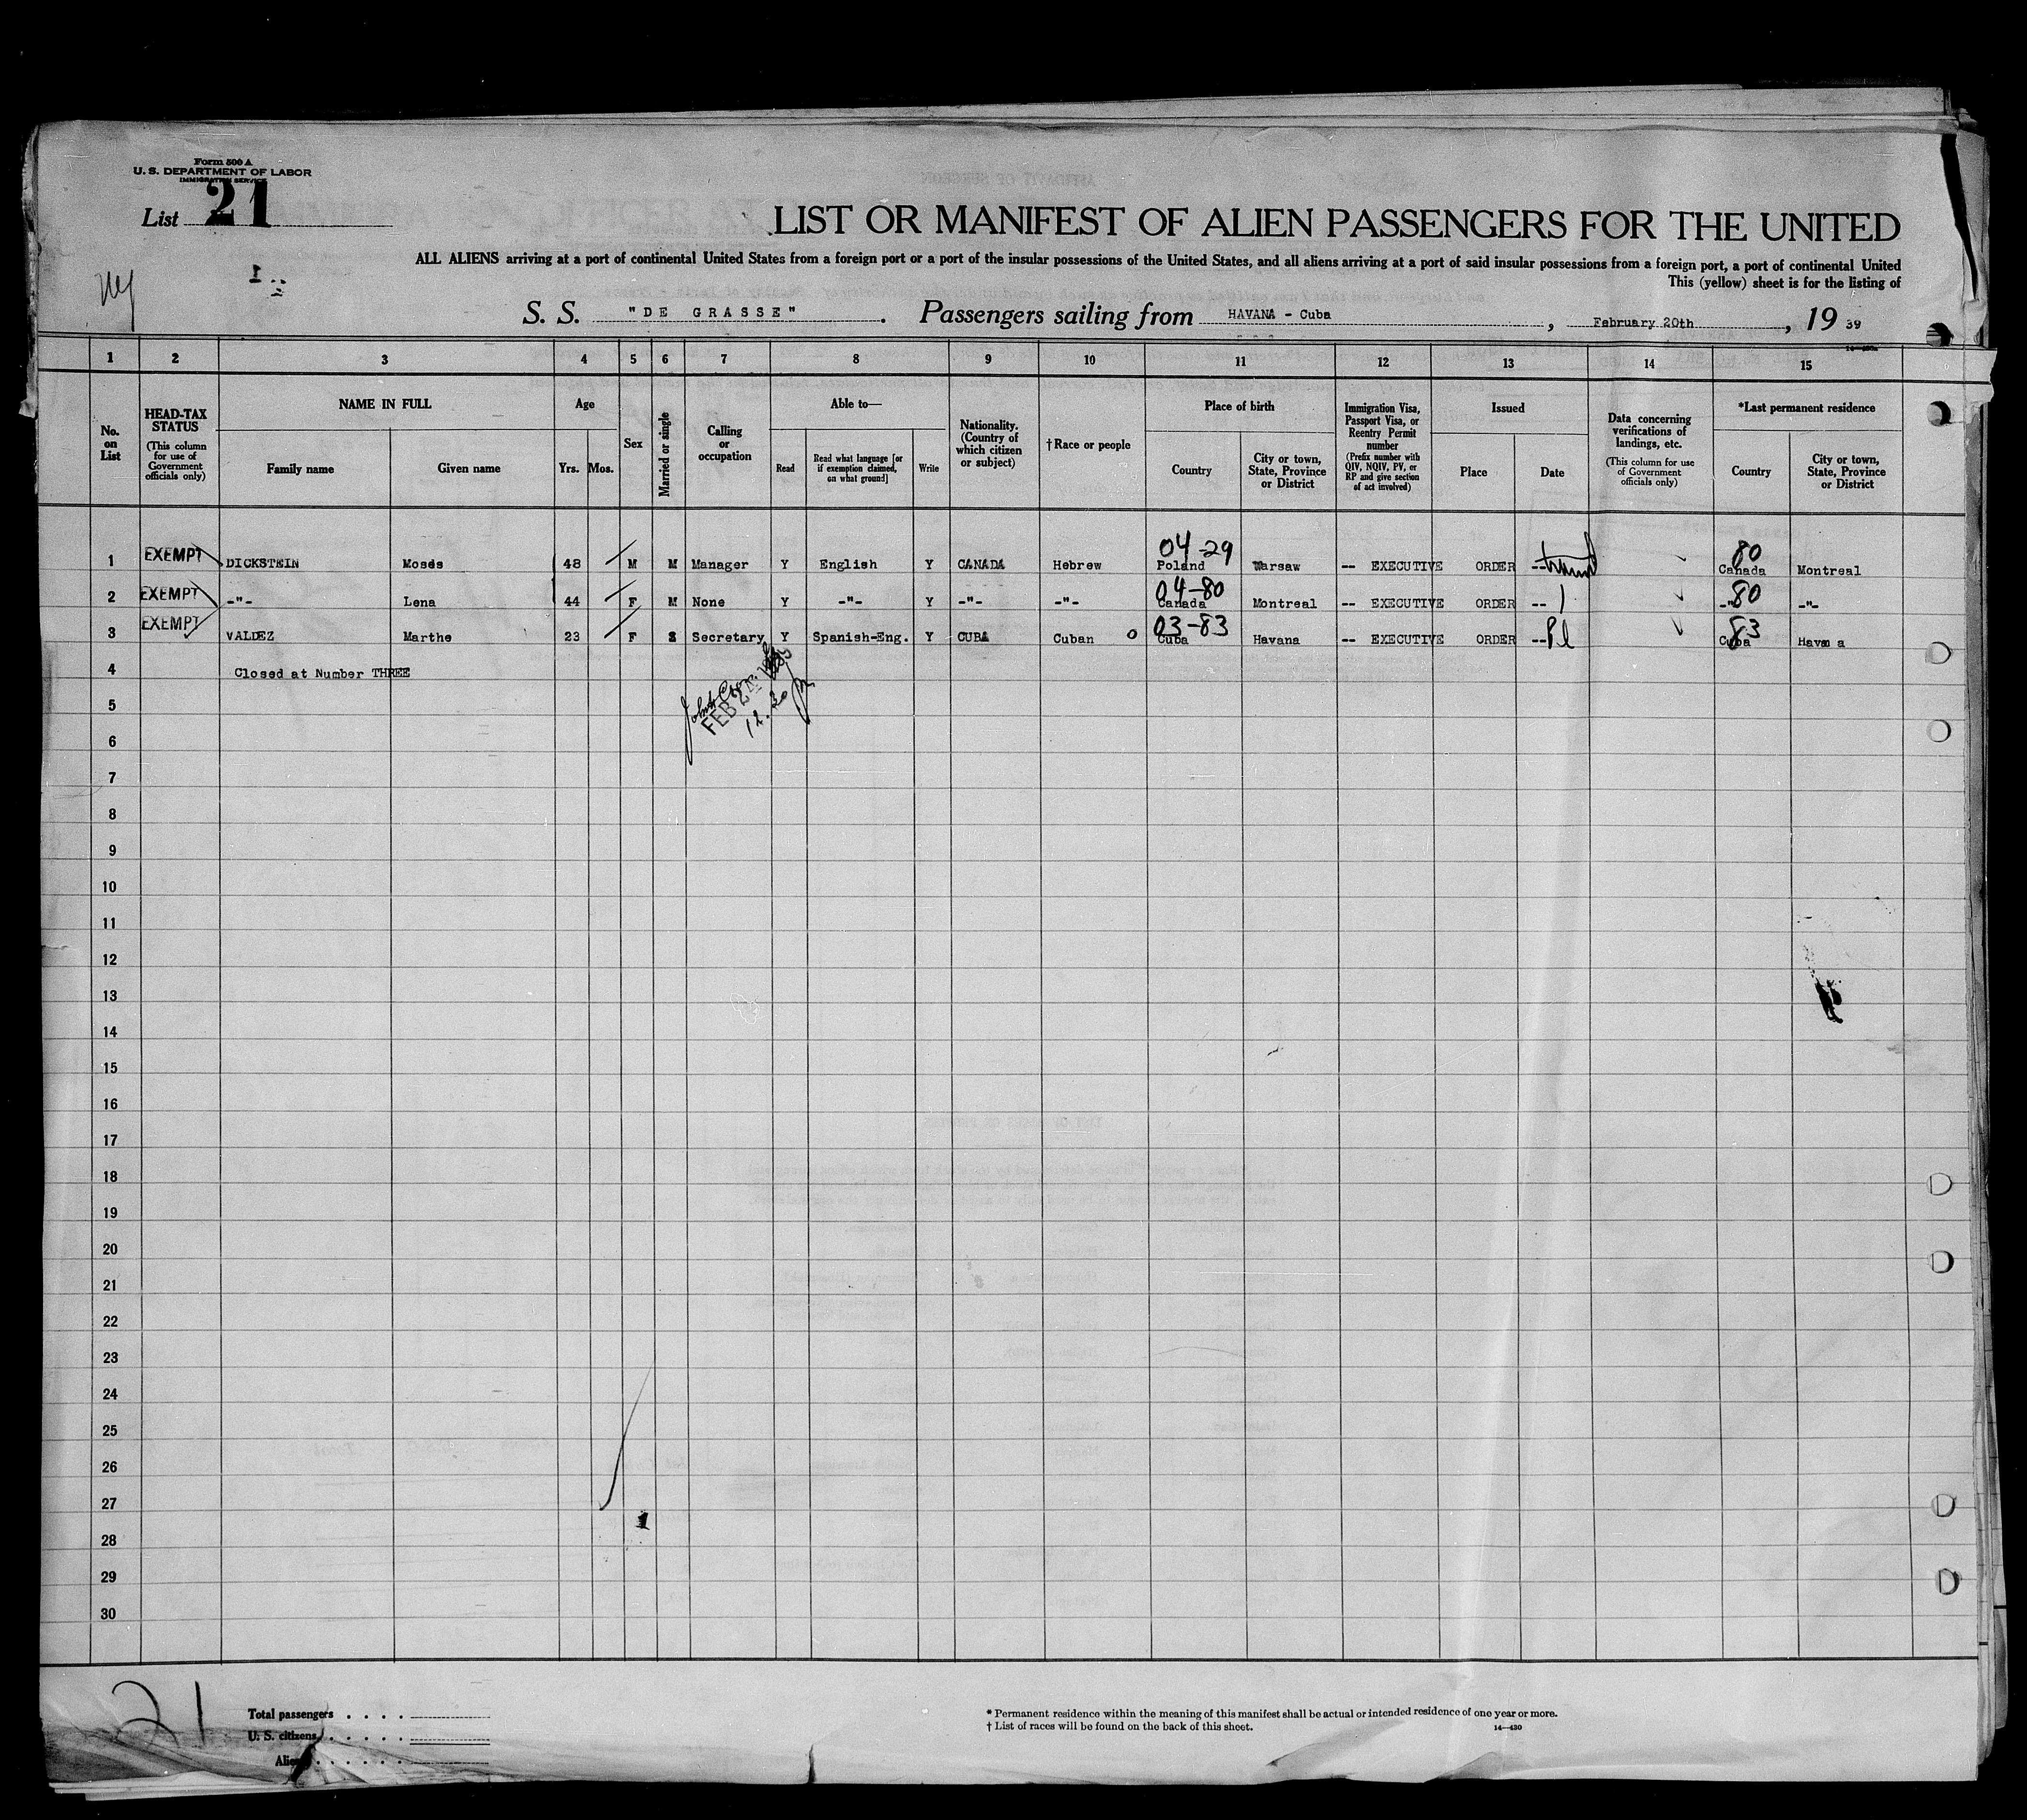 Form 500 A
U. S. DEPARTMENT OF LABOR
IMMIGRATION SERVICE
List 21
LIST OR MANIFEST OF ALIEN PASSENGERS FOR THE UNITED
ALL ALIENS arriving at a port of continental United States from a foreign port or a port of the insular possessions of the United States, and all aliens arriving at a port of said insular possessions from a foreign port, a port of continental United
This (yellow) sheet is for the listing of
S. S. "DE GRASSE". Passengers sailing from HAVANA - Cuba, February 20th, 19 39
1 2 3 4 5 6 7 8 9 10 11 12 13 14 15
No. on List
HEAD-TAX STATUS (This column for use of Government officials only)
NAME IN FULL
Family name
Given name
Age
Yrs. Mos.
Sex
Married or single
Calling or occupation
Able to—
Read
Read what language [or if exemption claimed, on what ground]
Write
Nationality. (Country of which citizen or subject)
†Race or people
Place of birth
Country
City or town, State, Province or District
Immigration Visa, Passport Visa, or Reentry Permit number (Prefix number with QIV, NQIV, PV, or RP and give section of act involved)
Issued
Place
Date
Data concerning verifications of landings, etc. (This column for use of Government officials only)
*Last permanent residence
Country
City or town, State, Province or District
04-29 80
1 EXEMPT DICKSTEIN Moses 48 M M Manager Y English Y CANADA Hebrew Poland Warsaw -- EXECUTIVE ORDER -- Canada Montreal
04-80 80
2 EXEMPT -"- Lena 44 F M None Y -"- Y -"- -"- Canada Montreal -- EXECUTIVE ORDER -- -"- -"-
03-83 83
3 EXEMPT VALDEZ Marthe 23 F S Secretary Y Spanish-Eng. Y CUBA Cuban o Cuba Havana -- EXECUTIVE ORDER -- Cuba Havana
4 Closed at Number THREE
5
FEB 24
12.30
6
7
8
9
10
11
12
13
14
15
16
17
18
19
20
21
22
23
24
25
26
27
28
29
30
21
Total passengers . . . .
U. S. citizens . . . . . .
Aliens . . . . . .
* Permanent residence within the meaning of this manifest shall be actual or intended residence of one year or more.
† List of races will be found on the back of this sheet.
14—430